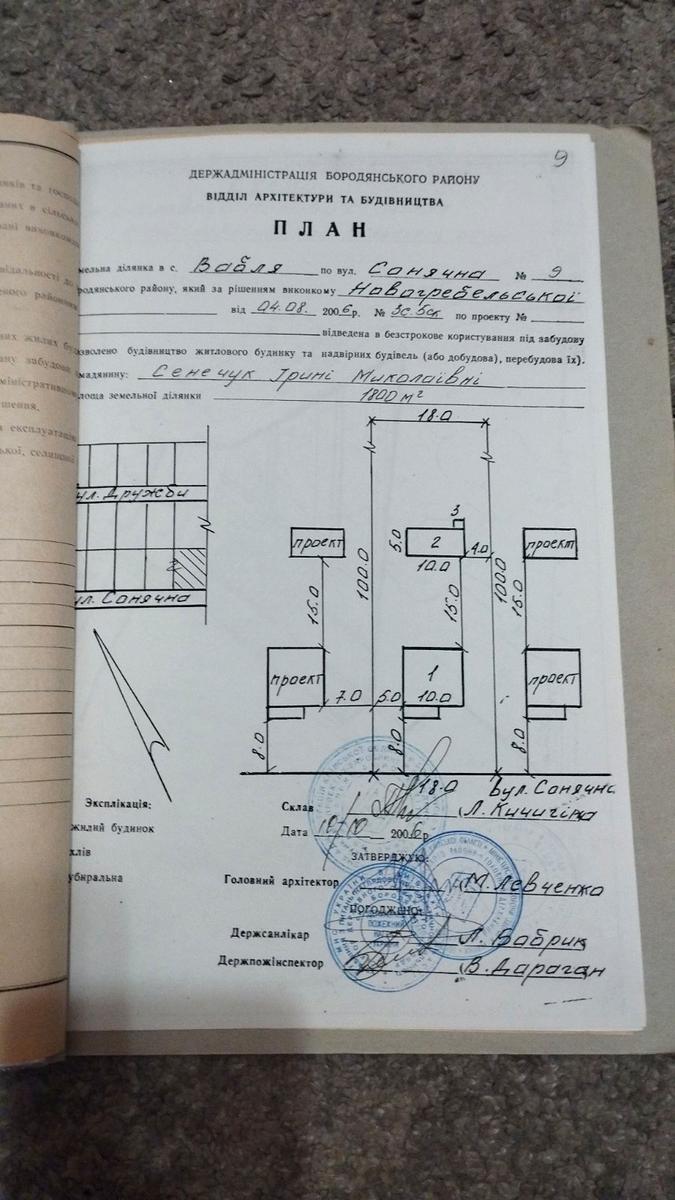 9
ДЕРЖАДМІНІСТРАЦІЯ БОРОДЯНСЬКОГО РАЙОНУ
ВІДДІЛ АРХІТЕКТУРИ ТА БУДІВНИЦТВА
ПЛАН
мельна ділянка в с. Вабля по вул. Сонячна № 9
родянського району, який за рішенням виконкому Новогребельської
від 04.08. 2006р. № по проекту №
відведена в безстрокове користування під забудову
озволено будівництво житлового будинку та надвірних будівель (або добудова), перебудова їх).
мадянину: Сенечук Ірині Миколаївні
лоща земельної ділянки 1800 м²
18.0
ул. Дружби
ул. Сонячна
проект 5.0 2 3 4.0 проект
10.0
15.0 100.0 15.0 100.0 15.0
проект 1 проект
7.0 5.0 10.0
8.0 8.0 8.0
18.0 Вул. Сонячна
Експлікація:
жилий будинок
хлів
убиральна
Склав Л. Кичигіна
Дата 10/10 2006р
ЗАТВЕРДЖУЮ:
Головний архітектор М. Левченко
ПОГОДЖЕНО:
Держсанлікар Л. Бабрик
Держпожінспектор В. Дараган